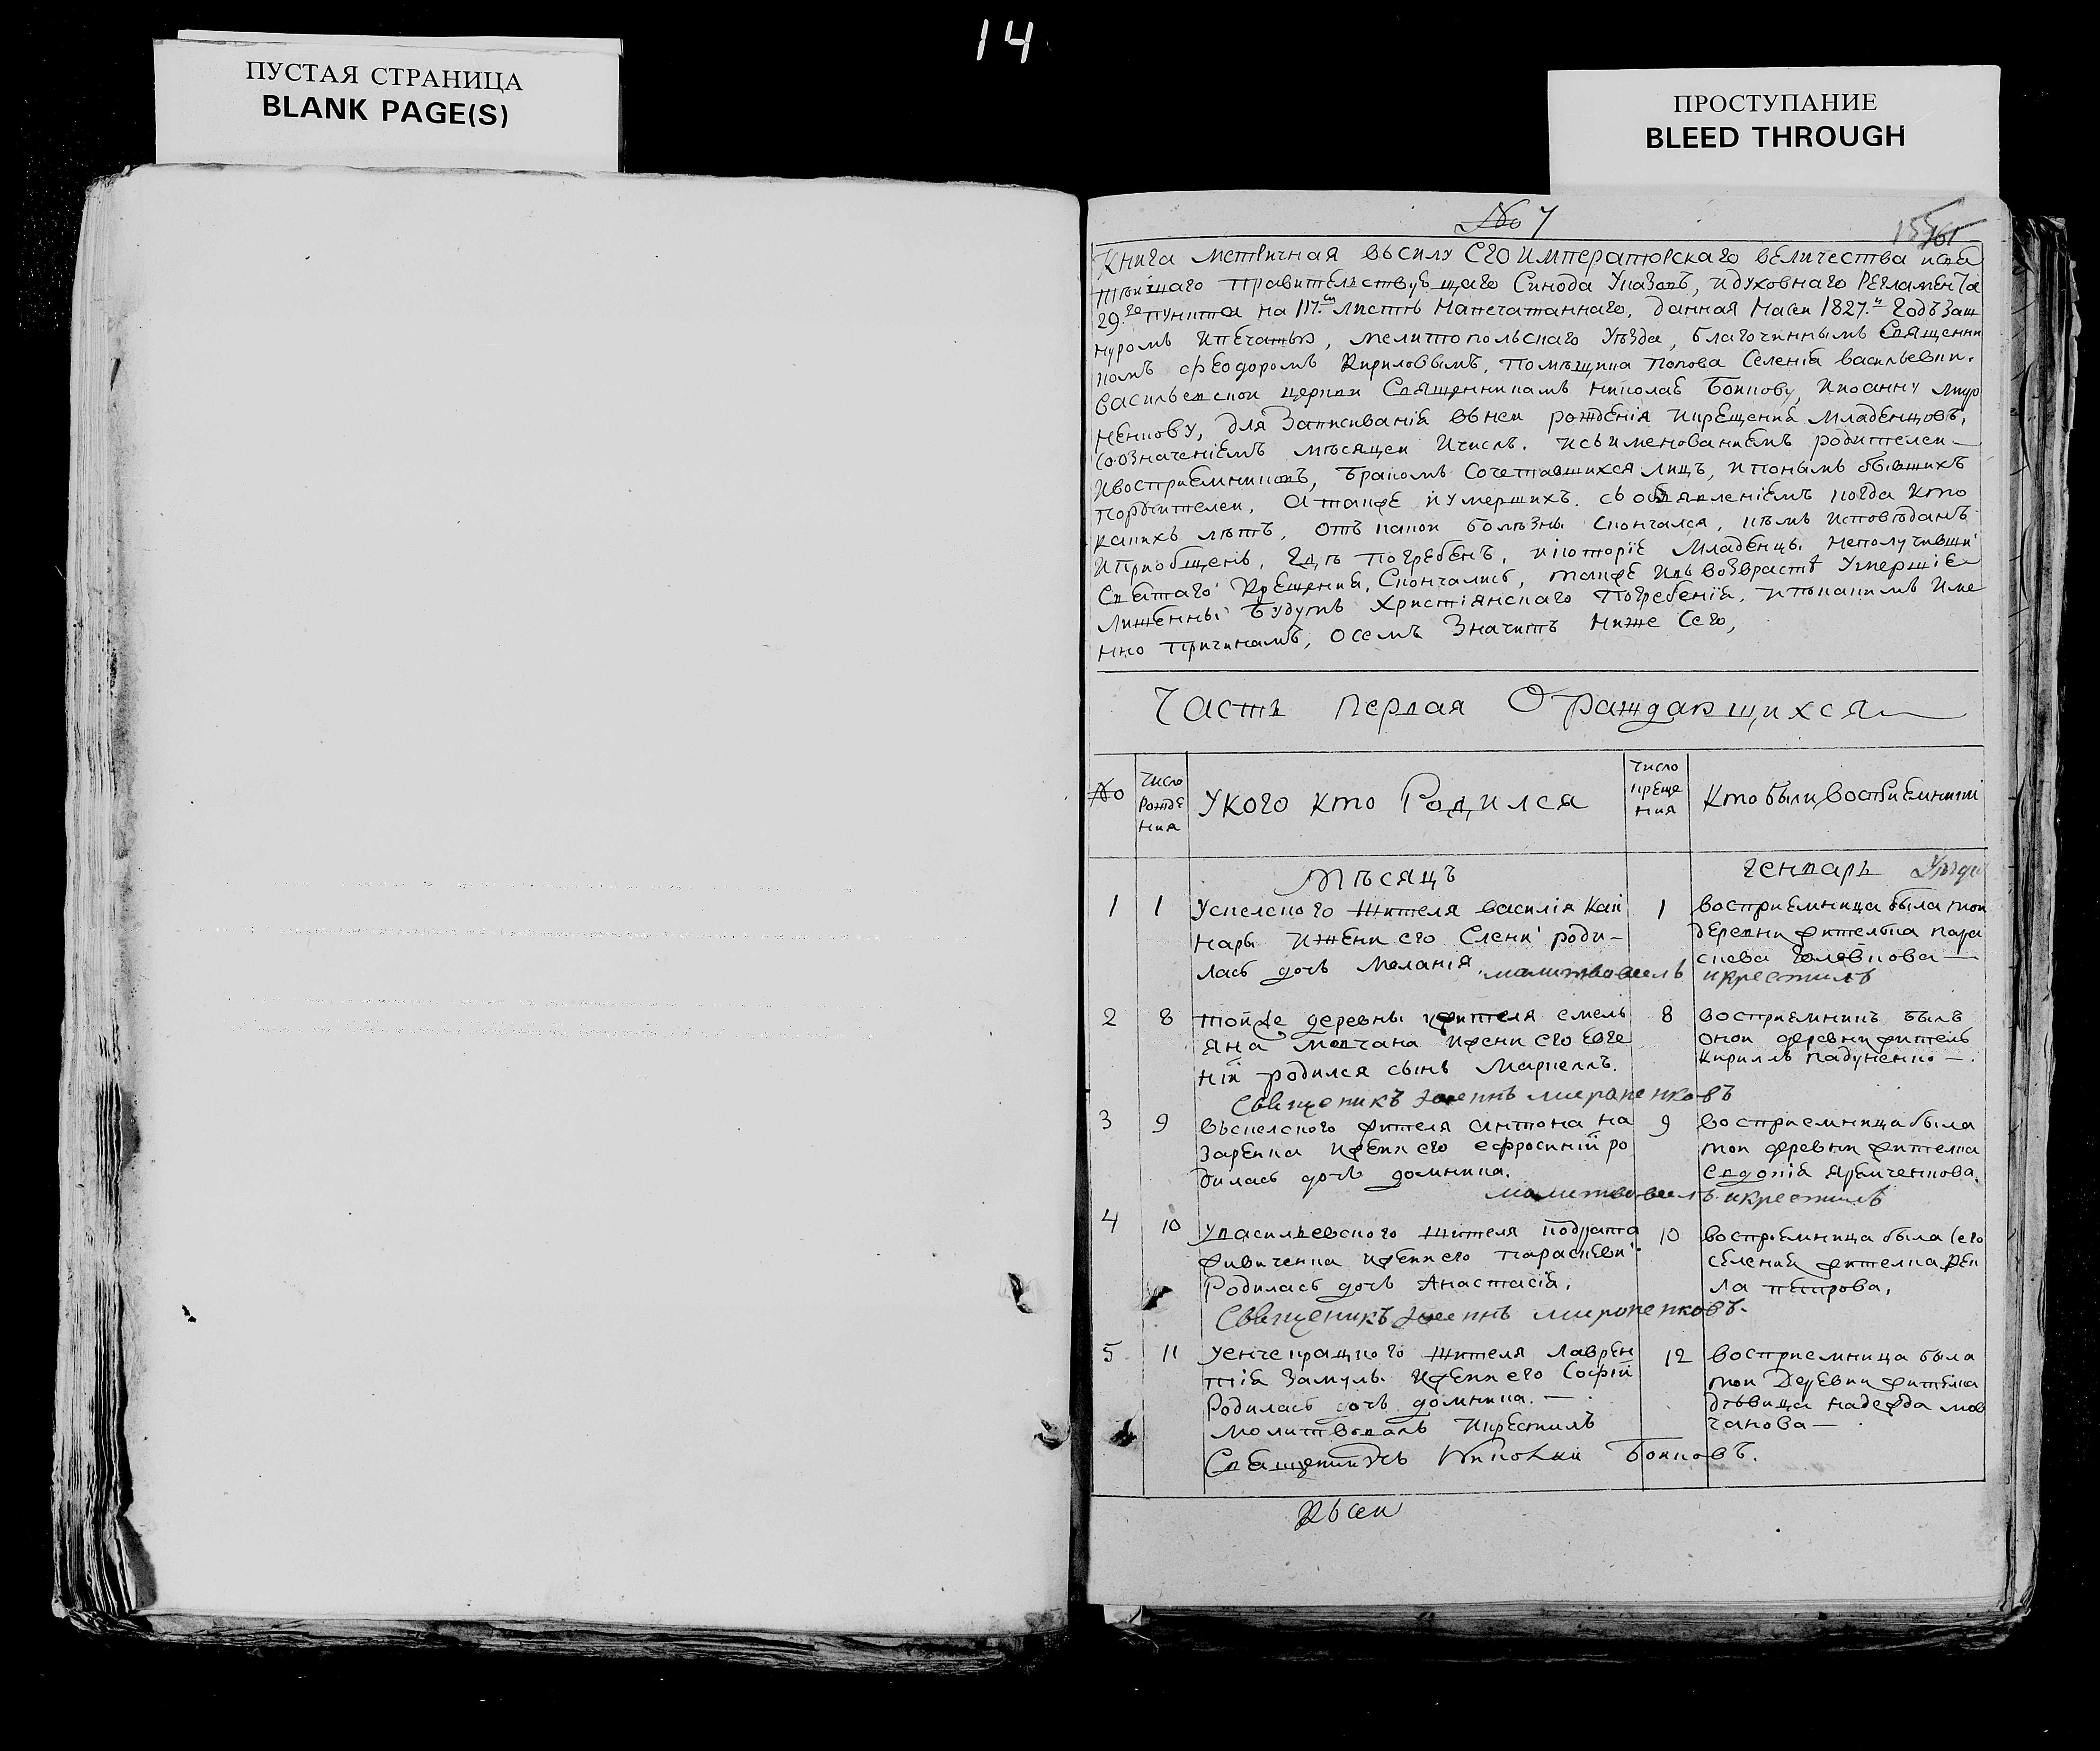 14
ПУСТАЯ СТРАНИЦА
BLANK PAGE(S)
ПРОСТУПАНИЕ
BLEED THROUGH
№ 7
Книга метричная въсилу Его императорскаго величества исвя
тѣйшаго правительствующаго Синода Указовъ, идуховнаго Регламента
29.го пункта на 117.м листѣ напечатаннаго, данная насей 1827.й годъ заш
нуромъ ипечатью, мелитопольскаго уѣзда, благочиннымъ Священни
комъ феодоромъ Кириловымъ, помѣщика попова селенія васильевки.
васильевской церкви Священникамъ николаю Боикову, Иоанну
для Записыванія вьней рожденія икрещения младенцовъ,
Созначеніемъ мѣсяцеи Ичислъ. исьименованиемъ родителеи
Ивосприемниковъ, бракомъ Сочетавшихся лицъ, ипонымъ бывшихъ
поручителеи, Атакже иумершихъ. сьобъявленіемъ когда кто
какихъ лѣтъ, отъ какои болѣзны скончался, кѣмъ исповѣданъ
Иприобщенъ, Гдѣ погребенъ, икоторіе младенцы неполучивши
Святаго Крещения, скончались, также ивъ возврастѣ Умершіе
лишенны будутъ христіянскаго погребенія, ипокакимъ име
нно причинамъ, осемъ Значитъ ниже Сего,
Часть первая Ораждающихся
№
Число
Рожде
ния
Укого кто Родился
Число
креще
ния
Кто были восприемники
Мѣсяцъ
генварь
1 1
василія
ижени его Елени роди-
лась дочь Меланія.
1
восприемница была тои
деревни жителька пара
скева
молитвовалъ икрестилъ
2 8
тойже деревны жителя емель
яна мовчана ижени его Евге
ніи родился сынъ Маркеллъ.
8
восприемникъ былъ
онои деревни житель
кириллъ падуненко
3 9
жителя антона на
заренка ижени его ефросиніи ро
дилась дочь домника.
9
восприемница была
тои деревни жителка
Евдокія яремченкова.
молитвовалъ икрестилъ
4 10
Увасильевского жителя кодрата
ижени его параскеви
Родилась дочь Анастасія,
10
восприемница была сего
селения жителка
ла петрова,
5 11
жителя лаврен
тія Замулы ижени его Софіи
Родилась дочь домника.
Молитвовалъ Икрестилъ
Священникъ Николай Боиковъ.
12
восприемница была
тои Деревни жителка
дѣвица надежда мов
чанова
Късеи